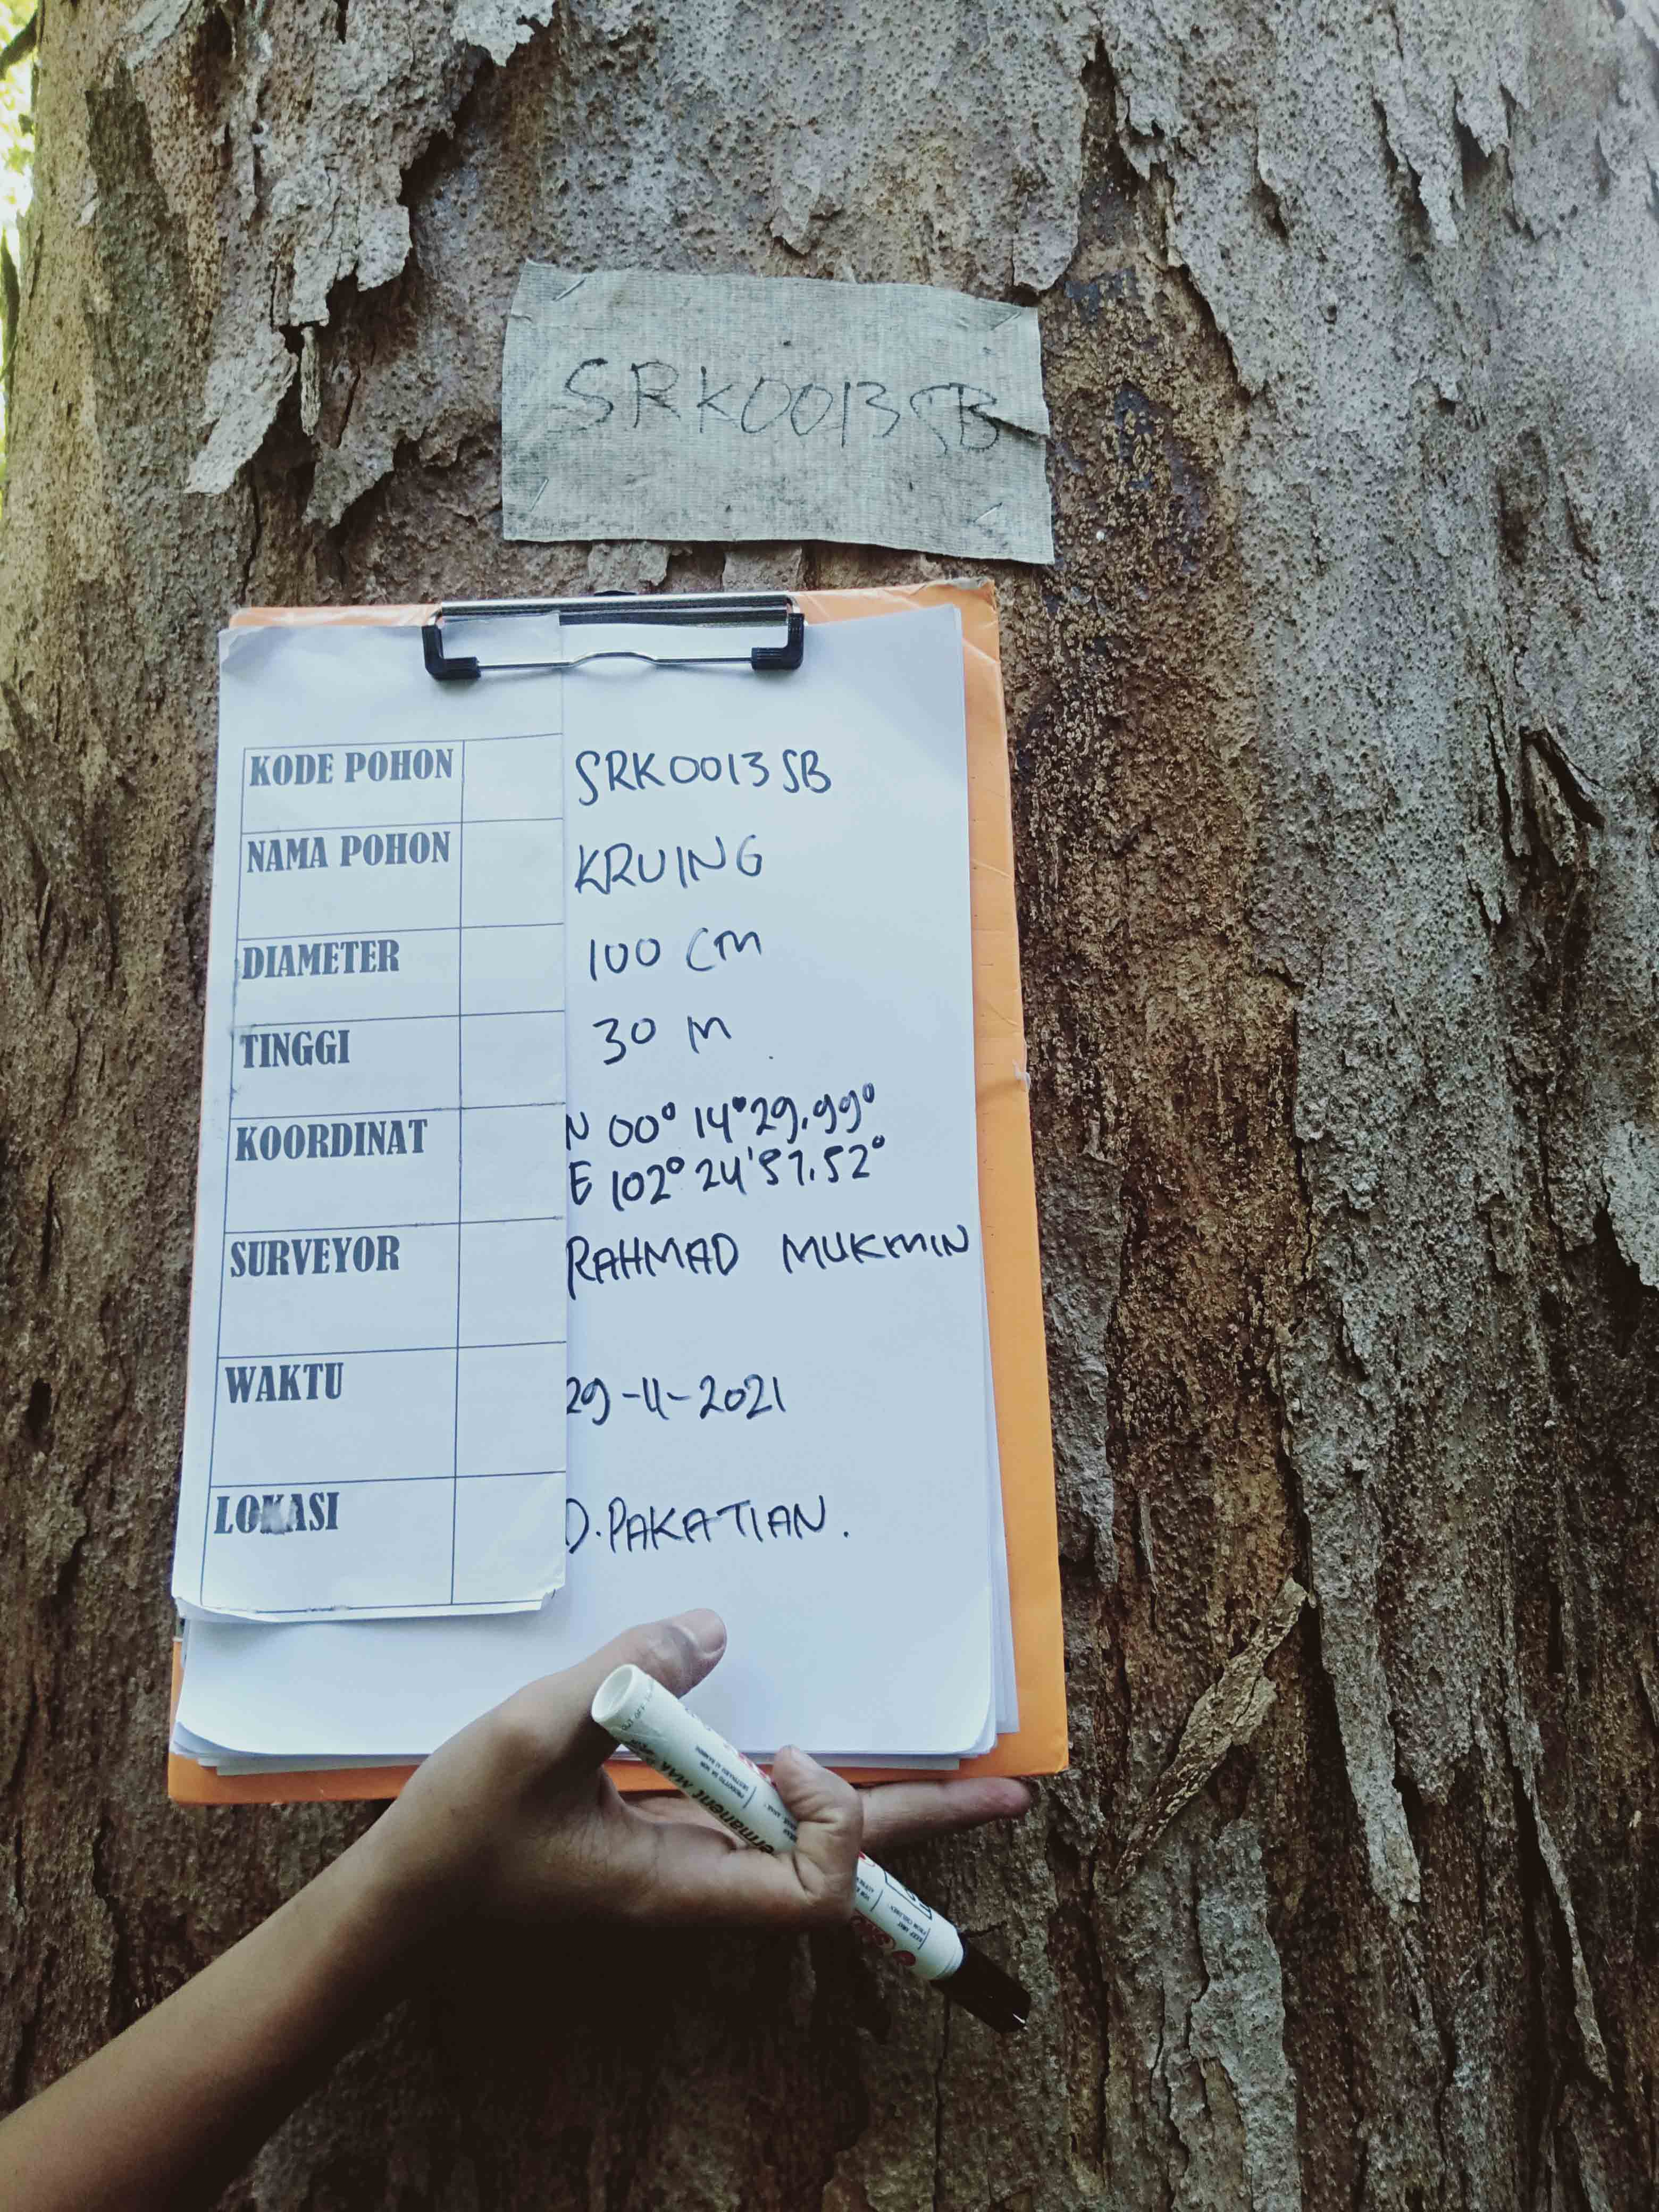 SRK0013SB
KODE POHON SRK0013SB
NAMA POHON KRUING
DIAMETER 100 CM
TINGGI 30 M
KOORDINAT N 00° 14°29.99°
E 102° 24'57.52°
SURVEYOR RAHMAD MUKMIN
WAKTU 29-11-2021
LOKASI D.PAKATIAN.